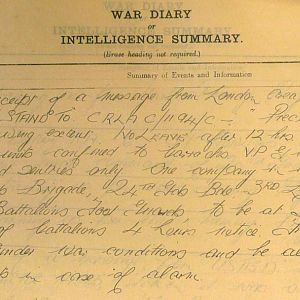 WAR DIARY
or
INTELLIGENCE SUMMARY.
(Erase heading not required.)
Summary of Events and Information
receipt of a message from London Area
STAND TO C.R.L.A C/1194/C -
extent. No LEAVE after 12 hrs
units confined to barracks VP
sentries only One company in
Brigade, 24th Gds Bde 3RD
Battalions Foot Guards to be at
of battalions 4 hours notice
under war conditions and be
in case of alarm.